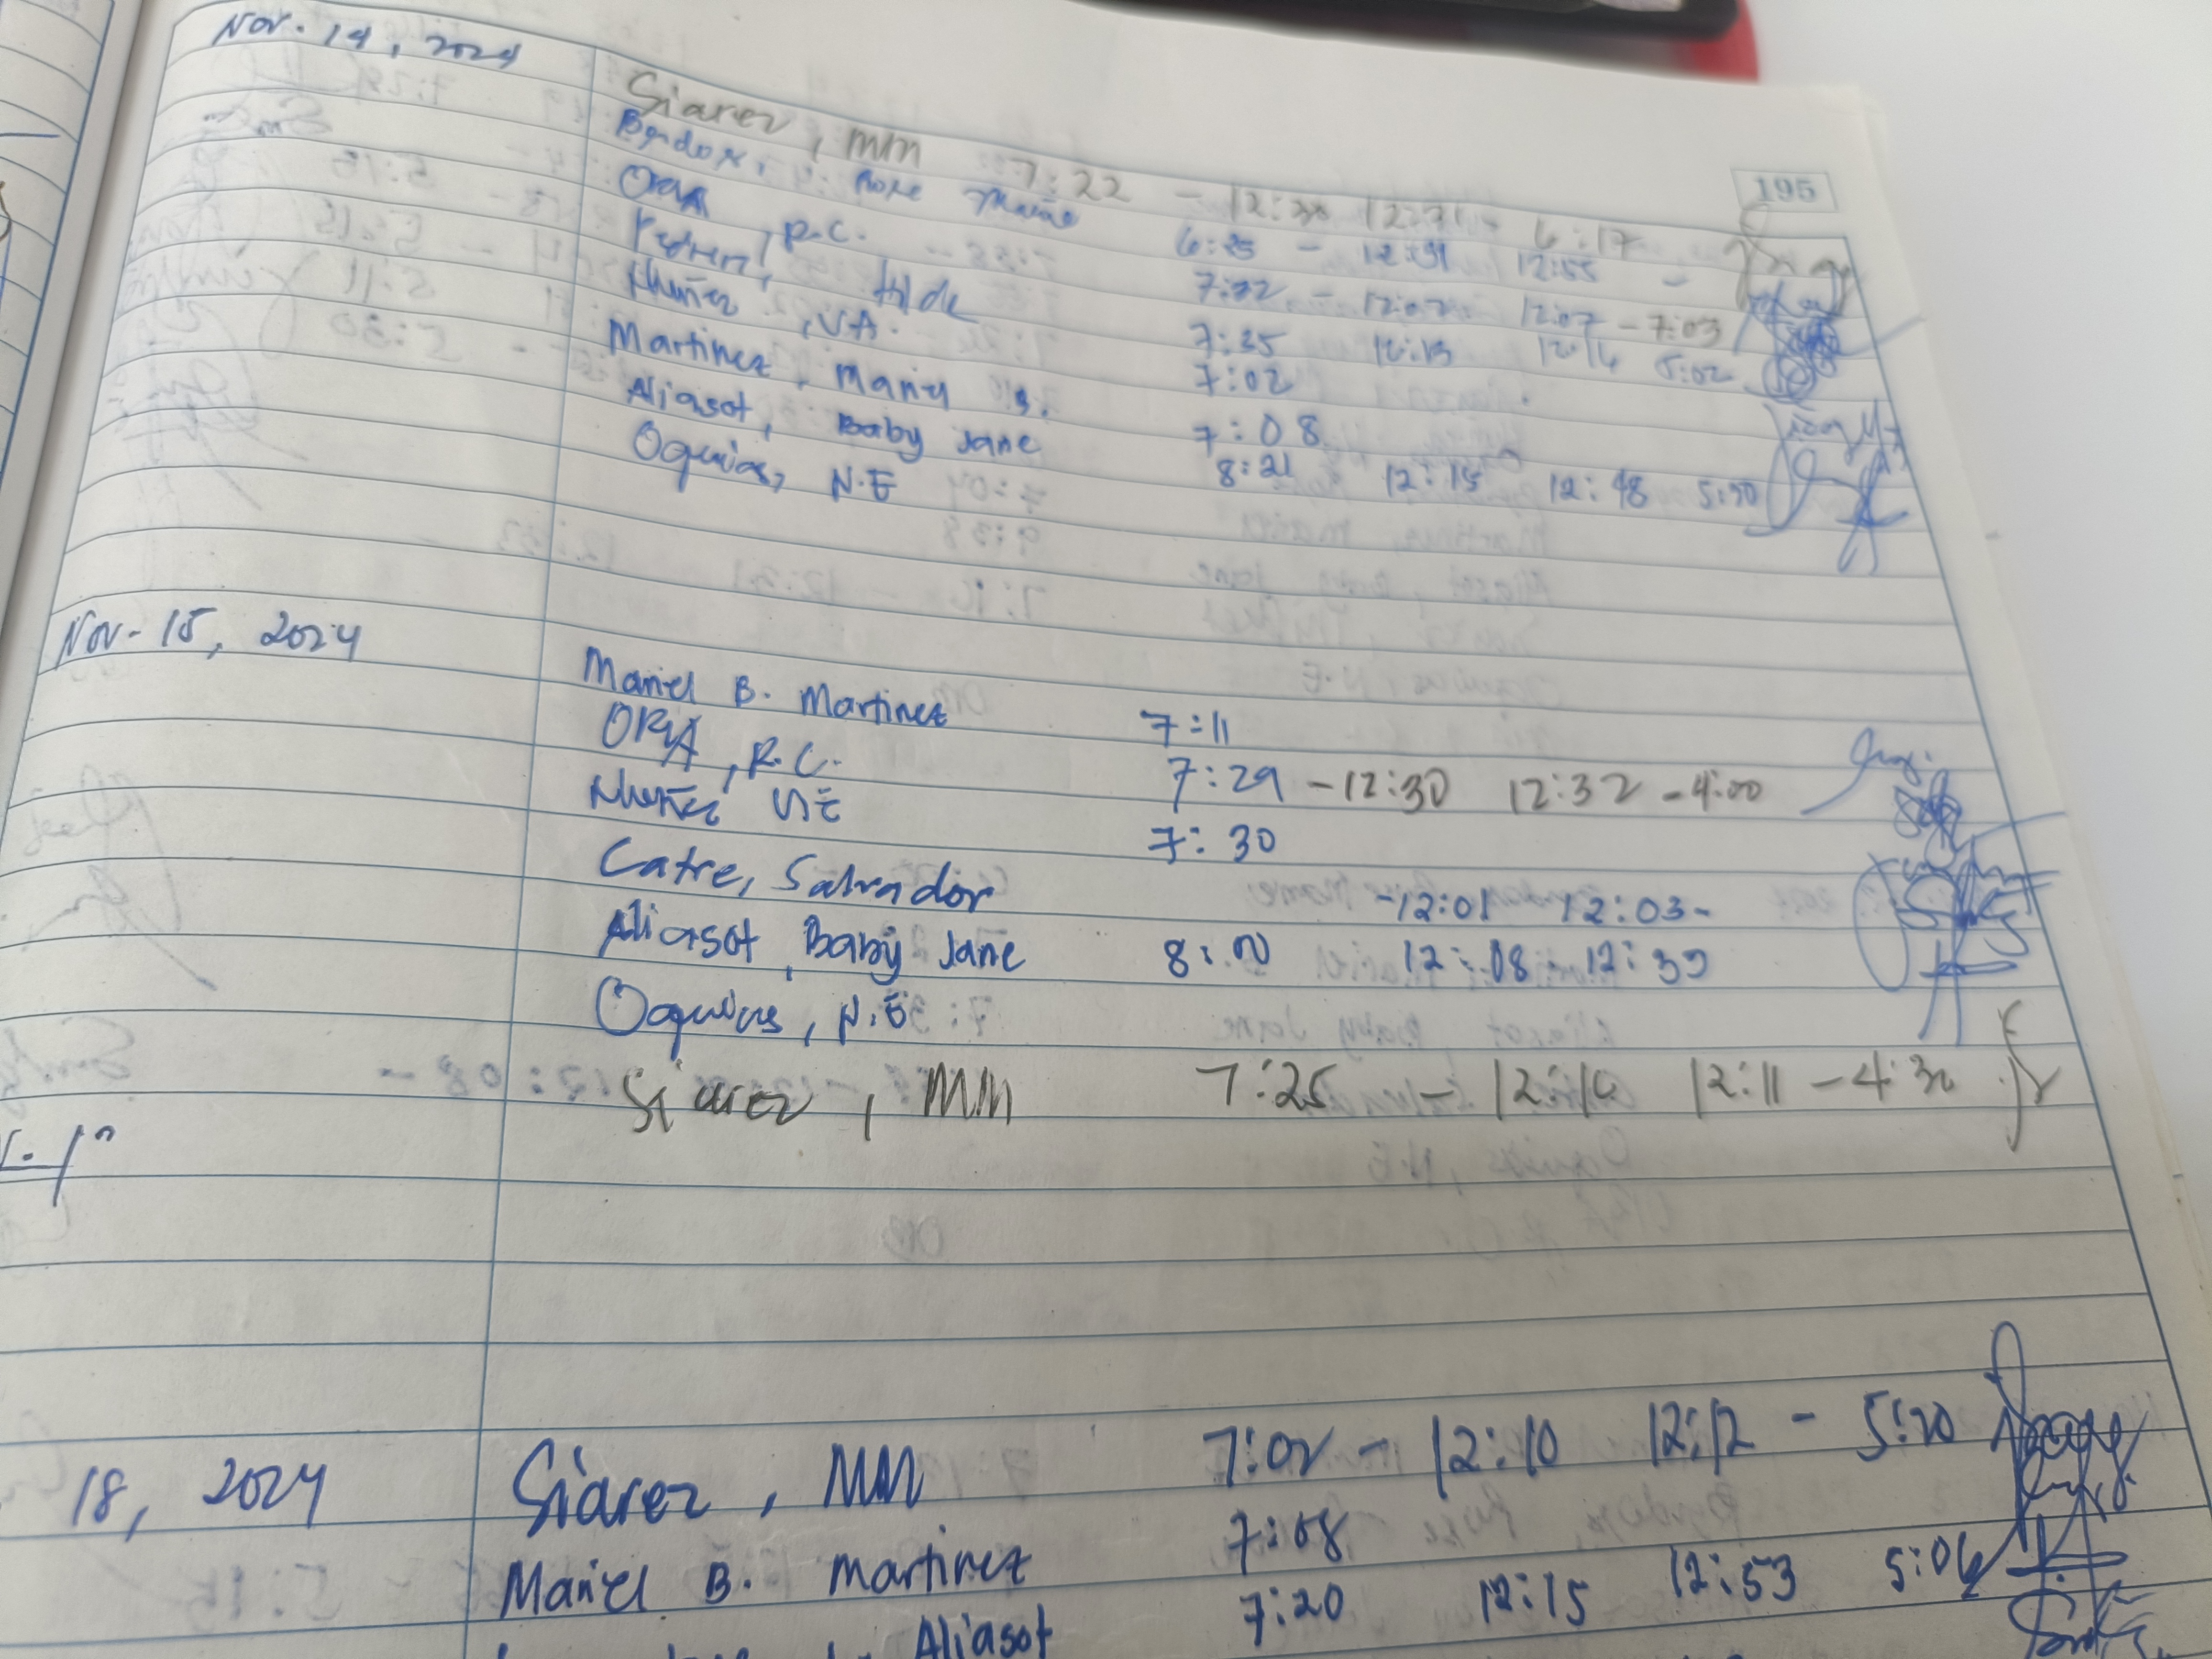 195
Nov. 14, 2024
Siarez, MM 7:22 - 12:30 12:31 - 6:17
Rose 6:25 - 12:51 12:55 -
ORIA, R.C. 7:22 - 12:02 12:07 - 7:03
Hilde 7:35 12:13 12:14 5:02
Nuñez, V.A. 7:02
Martinez, Mariel B. 7:08
Aliasot, Baby Jane 8:21 12:15 12:48 5:30
Oquias, N.E
Nov. 15, 2024
Mariel B. Martinez 7:11
ORIA, R.C. 7:29 - 12:30 12:32 - 4:00
Nuñez 7:30
Catre, Salvador -12:01 12:03-
Aliasot, Baby Jane 8:00 12:08 - 12:39
Oquias, N.E
Siarez, MM 7:25 - 12:10 12:11 - 4:30
18, 2024
Siarez, MM 7:02 - 12:10 12:12 - 5:20
Mariel B. Martinez 7:08
Aliasot 7:20 12:15 12:53 5:06